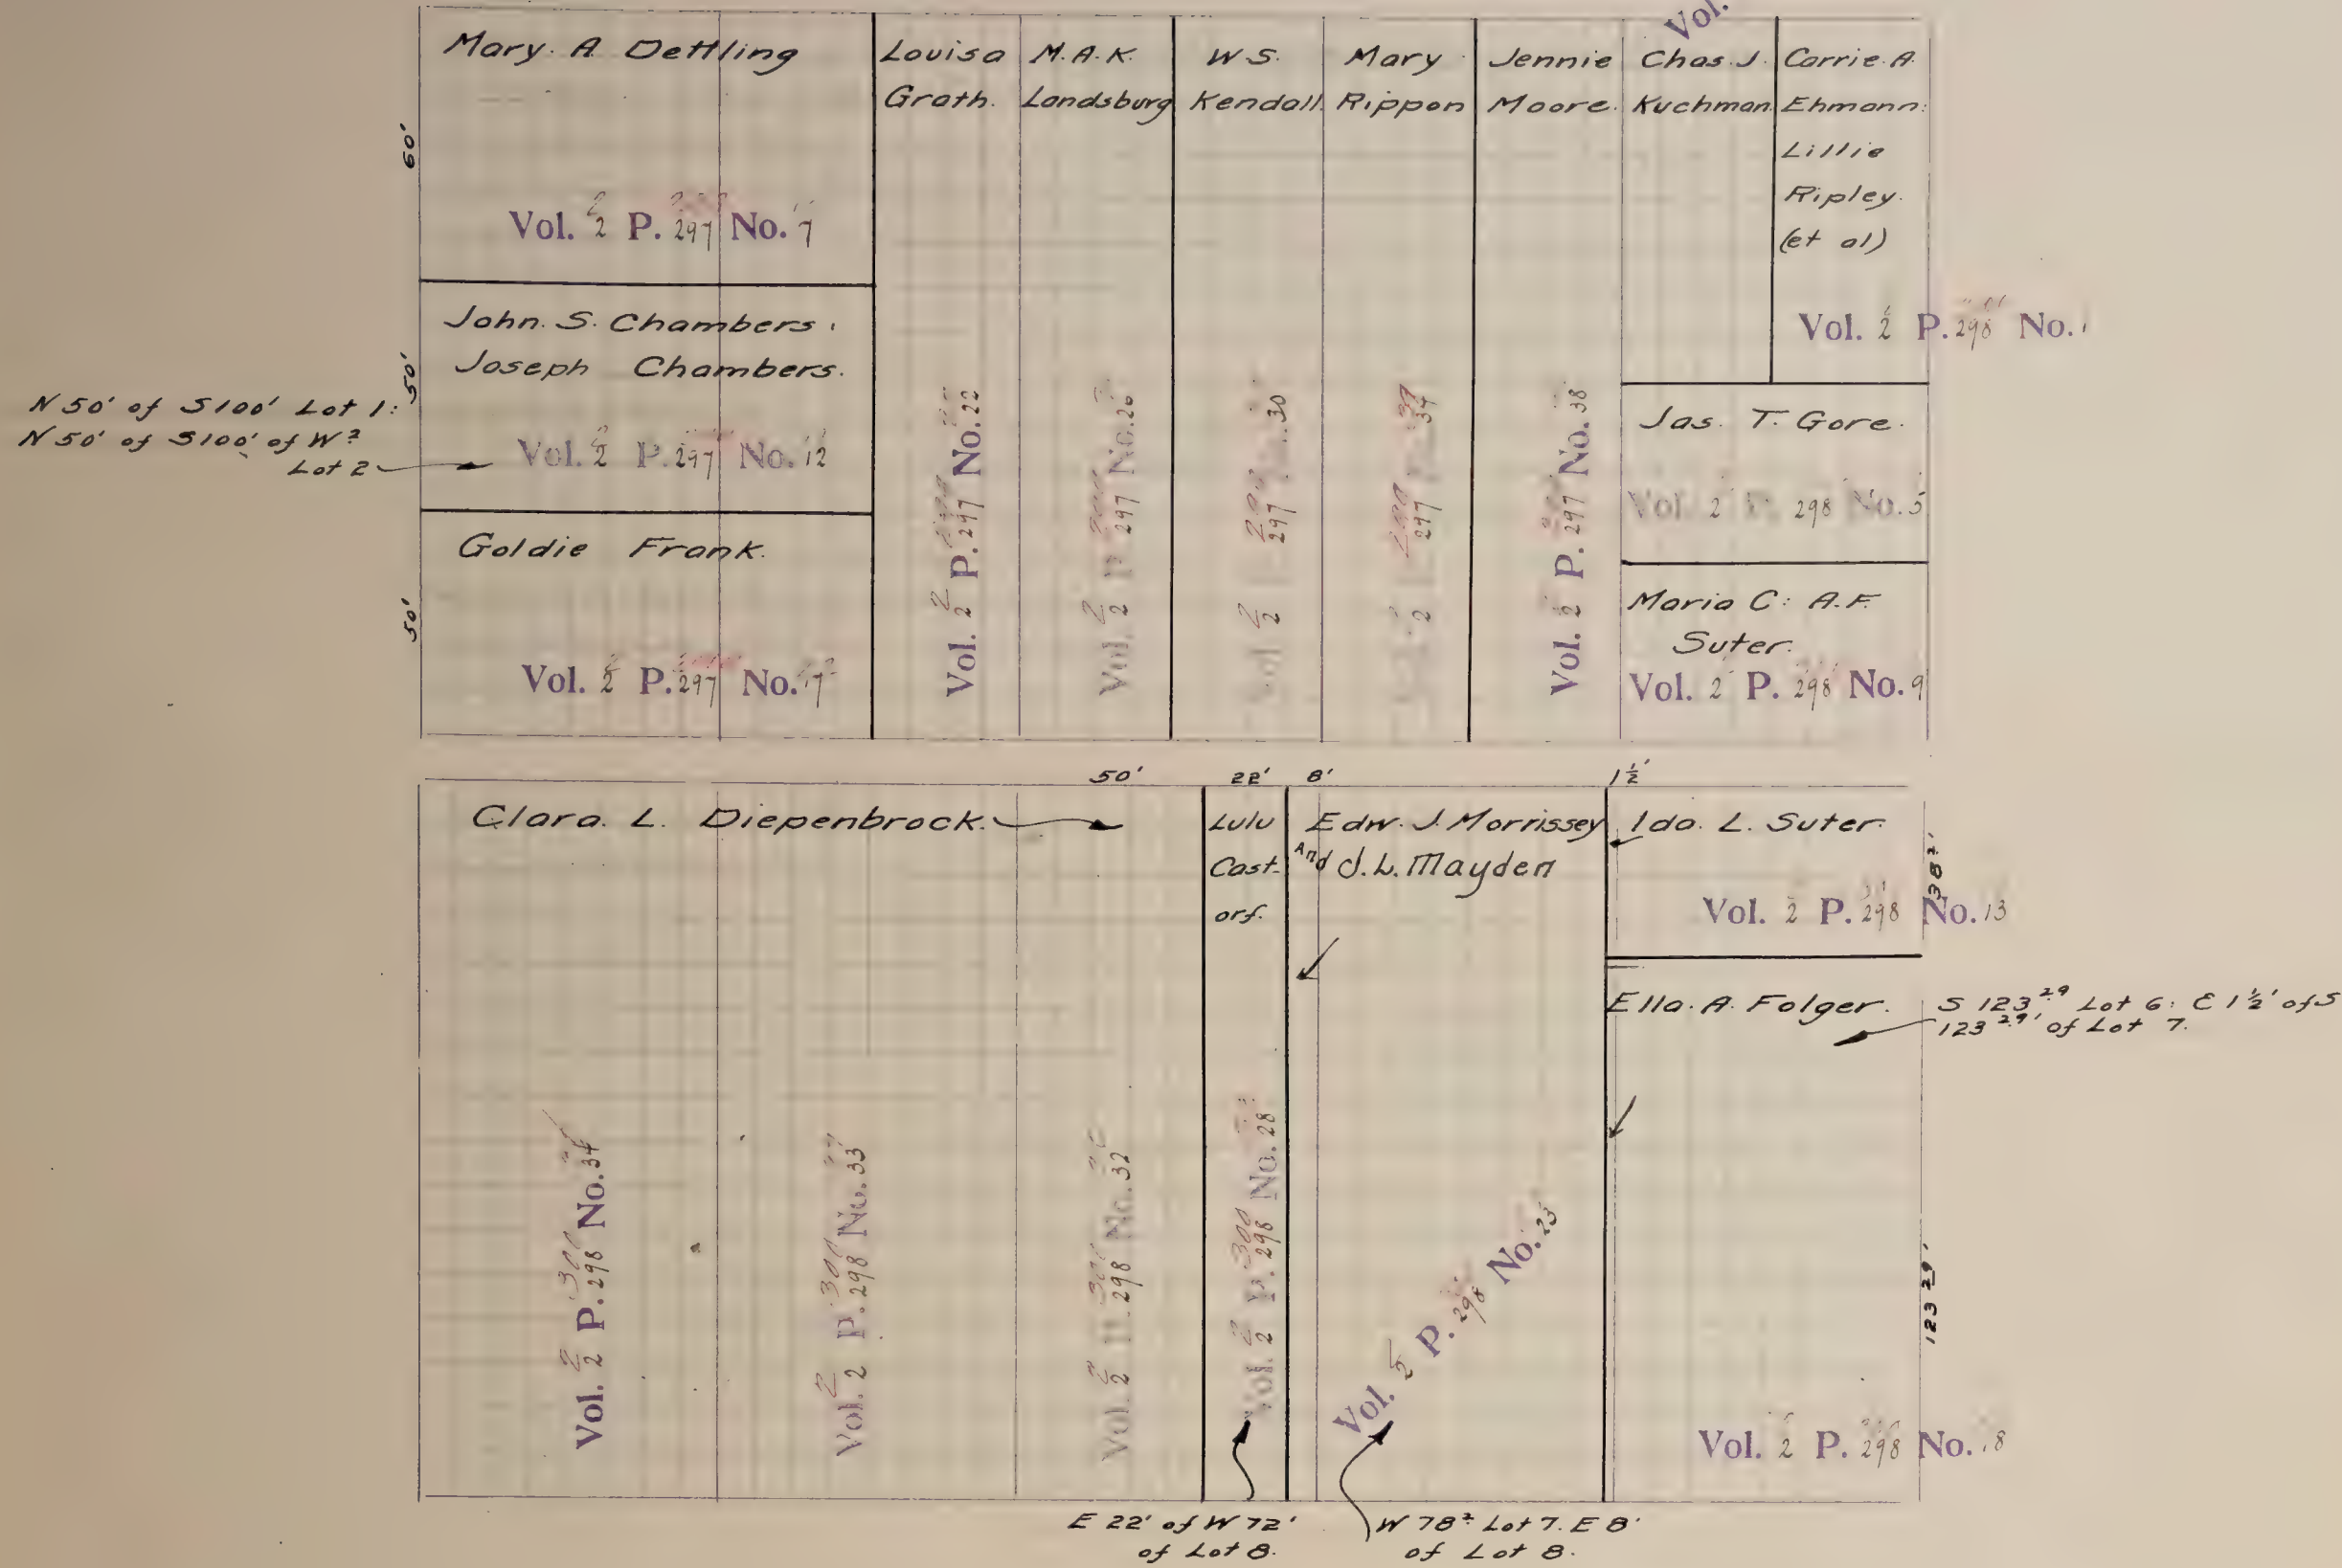 Vol.
Mary. A. Dettling
60'
Vol. 2 P. 297 No. 7
John. S. Chambers.
Joseph Chambers.
50'
N 50' of S 100' Lot 1:
N 50' of S 100' of W ²
Lot 2
Vol. 2 P. 297 No. 12
Goldie Frank.
50'
Vol. 2 P. 297 No. 17
Louisa
Groth.
Vol. 2 P. 297 No. 22
M. A. K.
Landsburg
Vol. 2 P 297 No. 26
W. S.
Kendall.
Vol 2 297 30
Mary
Rippon
2 297 34
Jennie
Moore.
Vol. 2 P. 297 No. 38
Chas. J.
Kuchman
Carrie. A.
Ehmann:
Lillie
Ripley.
(et al)
Vol. 2 P. 298 No. 1
Jas. T. Gore.
Vol. 2 P. 298 No. 5
Maria C: A. F.
Suter.
Vol. 2 P. 298 No. 9
50' 22' 8' 1½'
Clara. L. Diepenbrock.
Vol. 2 P. 298 No. 34
Vol. 2 P. 298 No. 33
Vol. 2 P. 298 No. 32
Lulu
Cast-
orf.
Vol. 2 P. 298 No. 28
Edw. J. Morrissey
And J. L. Mayden
Vol. 2 P. 298 No. 23
Ida. L. Suter.
38²'
Vol. 2 P. 298 No. 13
Ella. A. Folger.
S 123²⁹ Lot 6: E 1½' of S
123²⁹' of Lot 7.
123 29'
Vol. 2 P. 298 No. 18
E 22' of W 72'
of Lot 8.
W 78² Lot 7. E 8'
of Lot 8.